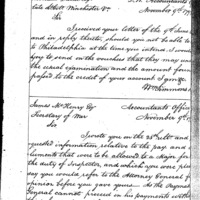 November 9th 179
Sir
I received your letter of the 7th June
and in reply thereto, should you not be able to
Philadelphia at the time you intend, I would
you to send on the vouchers that they may un
the usual examination and the amount found
passed to the credit of your account I am Sir
Wm Simmons
James McHenry Esqr
Accountants Office
Secretary of War
November 9th
Sir
I wrote you on the 25th ulto and
quested information relative to the pay and
ments that were to be allowed to a Major for
the duty of Inspector, and which you were plea
say you would, refer to the Attorney General
opinion before you gave yours. As the
General cannot proceed in his payments with